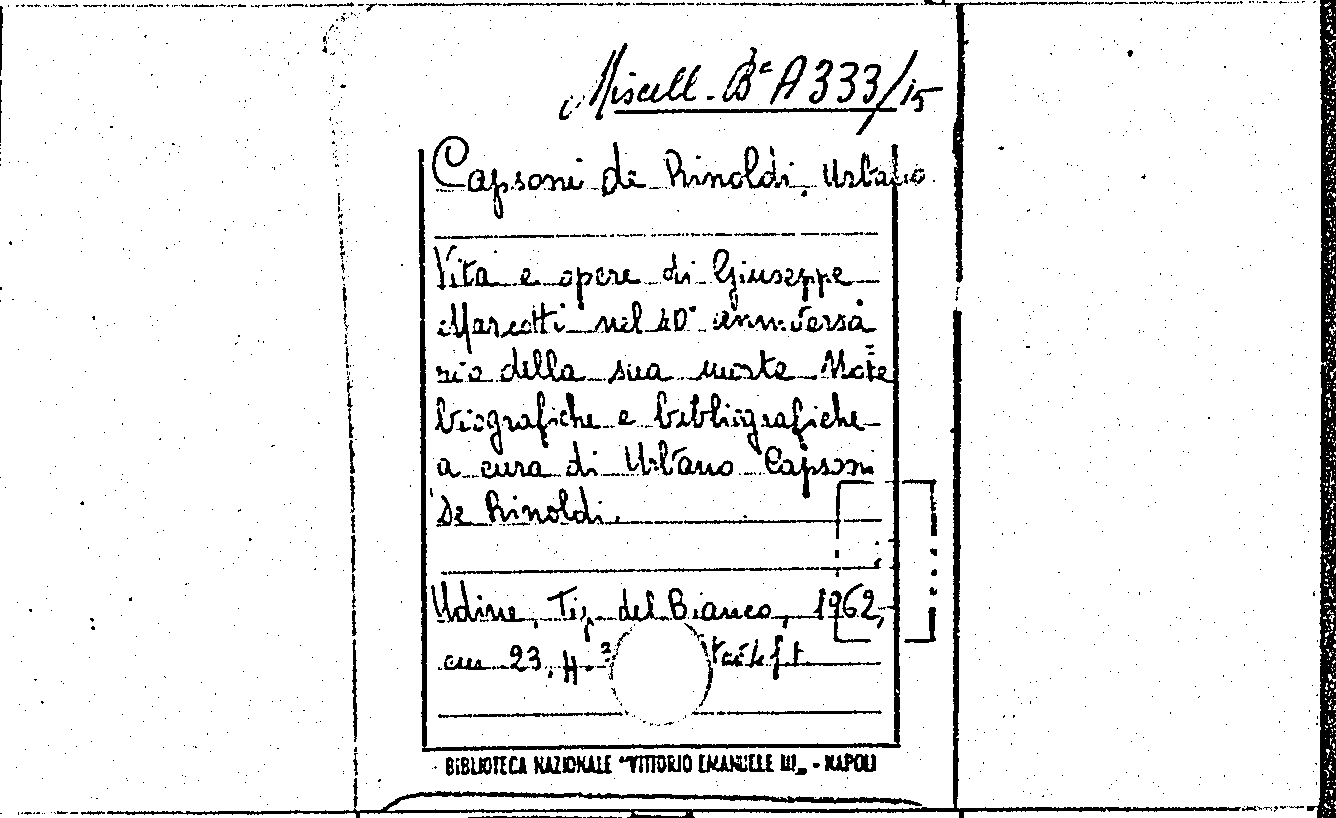 Miscell. Bª A 333/15
Capsoni de Rinoldi, Urbano
Vita e opere di Giuseppe
Marcotti nel 40° anniversa
rio della sua morte Note
biografiche e bibliografiche
a cura di Urbano Capsoni
De Rinoldi.
Udine, Tip. del Bianco, 1962,
cm 23, 4°
BIBLIOTECA NAZIONALE "VITTORIO EMANUELE III„ - NAPOLI